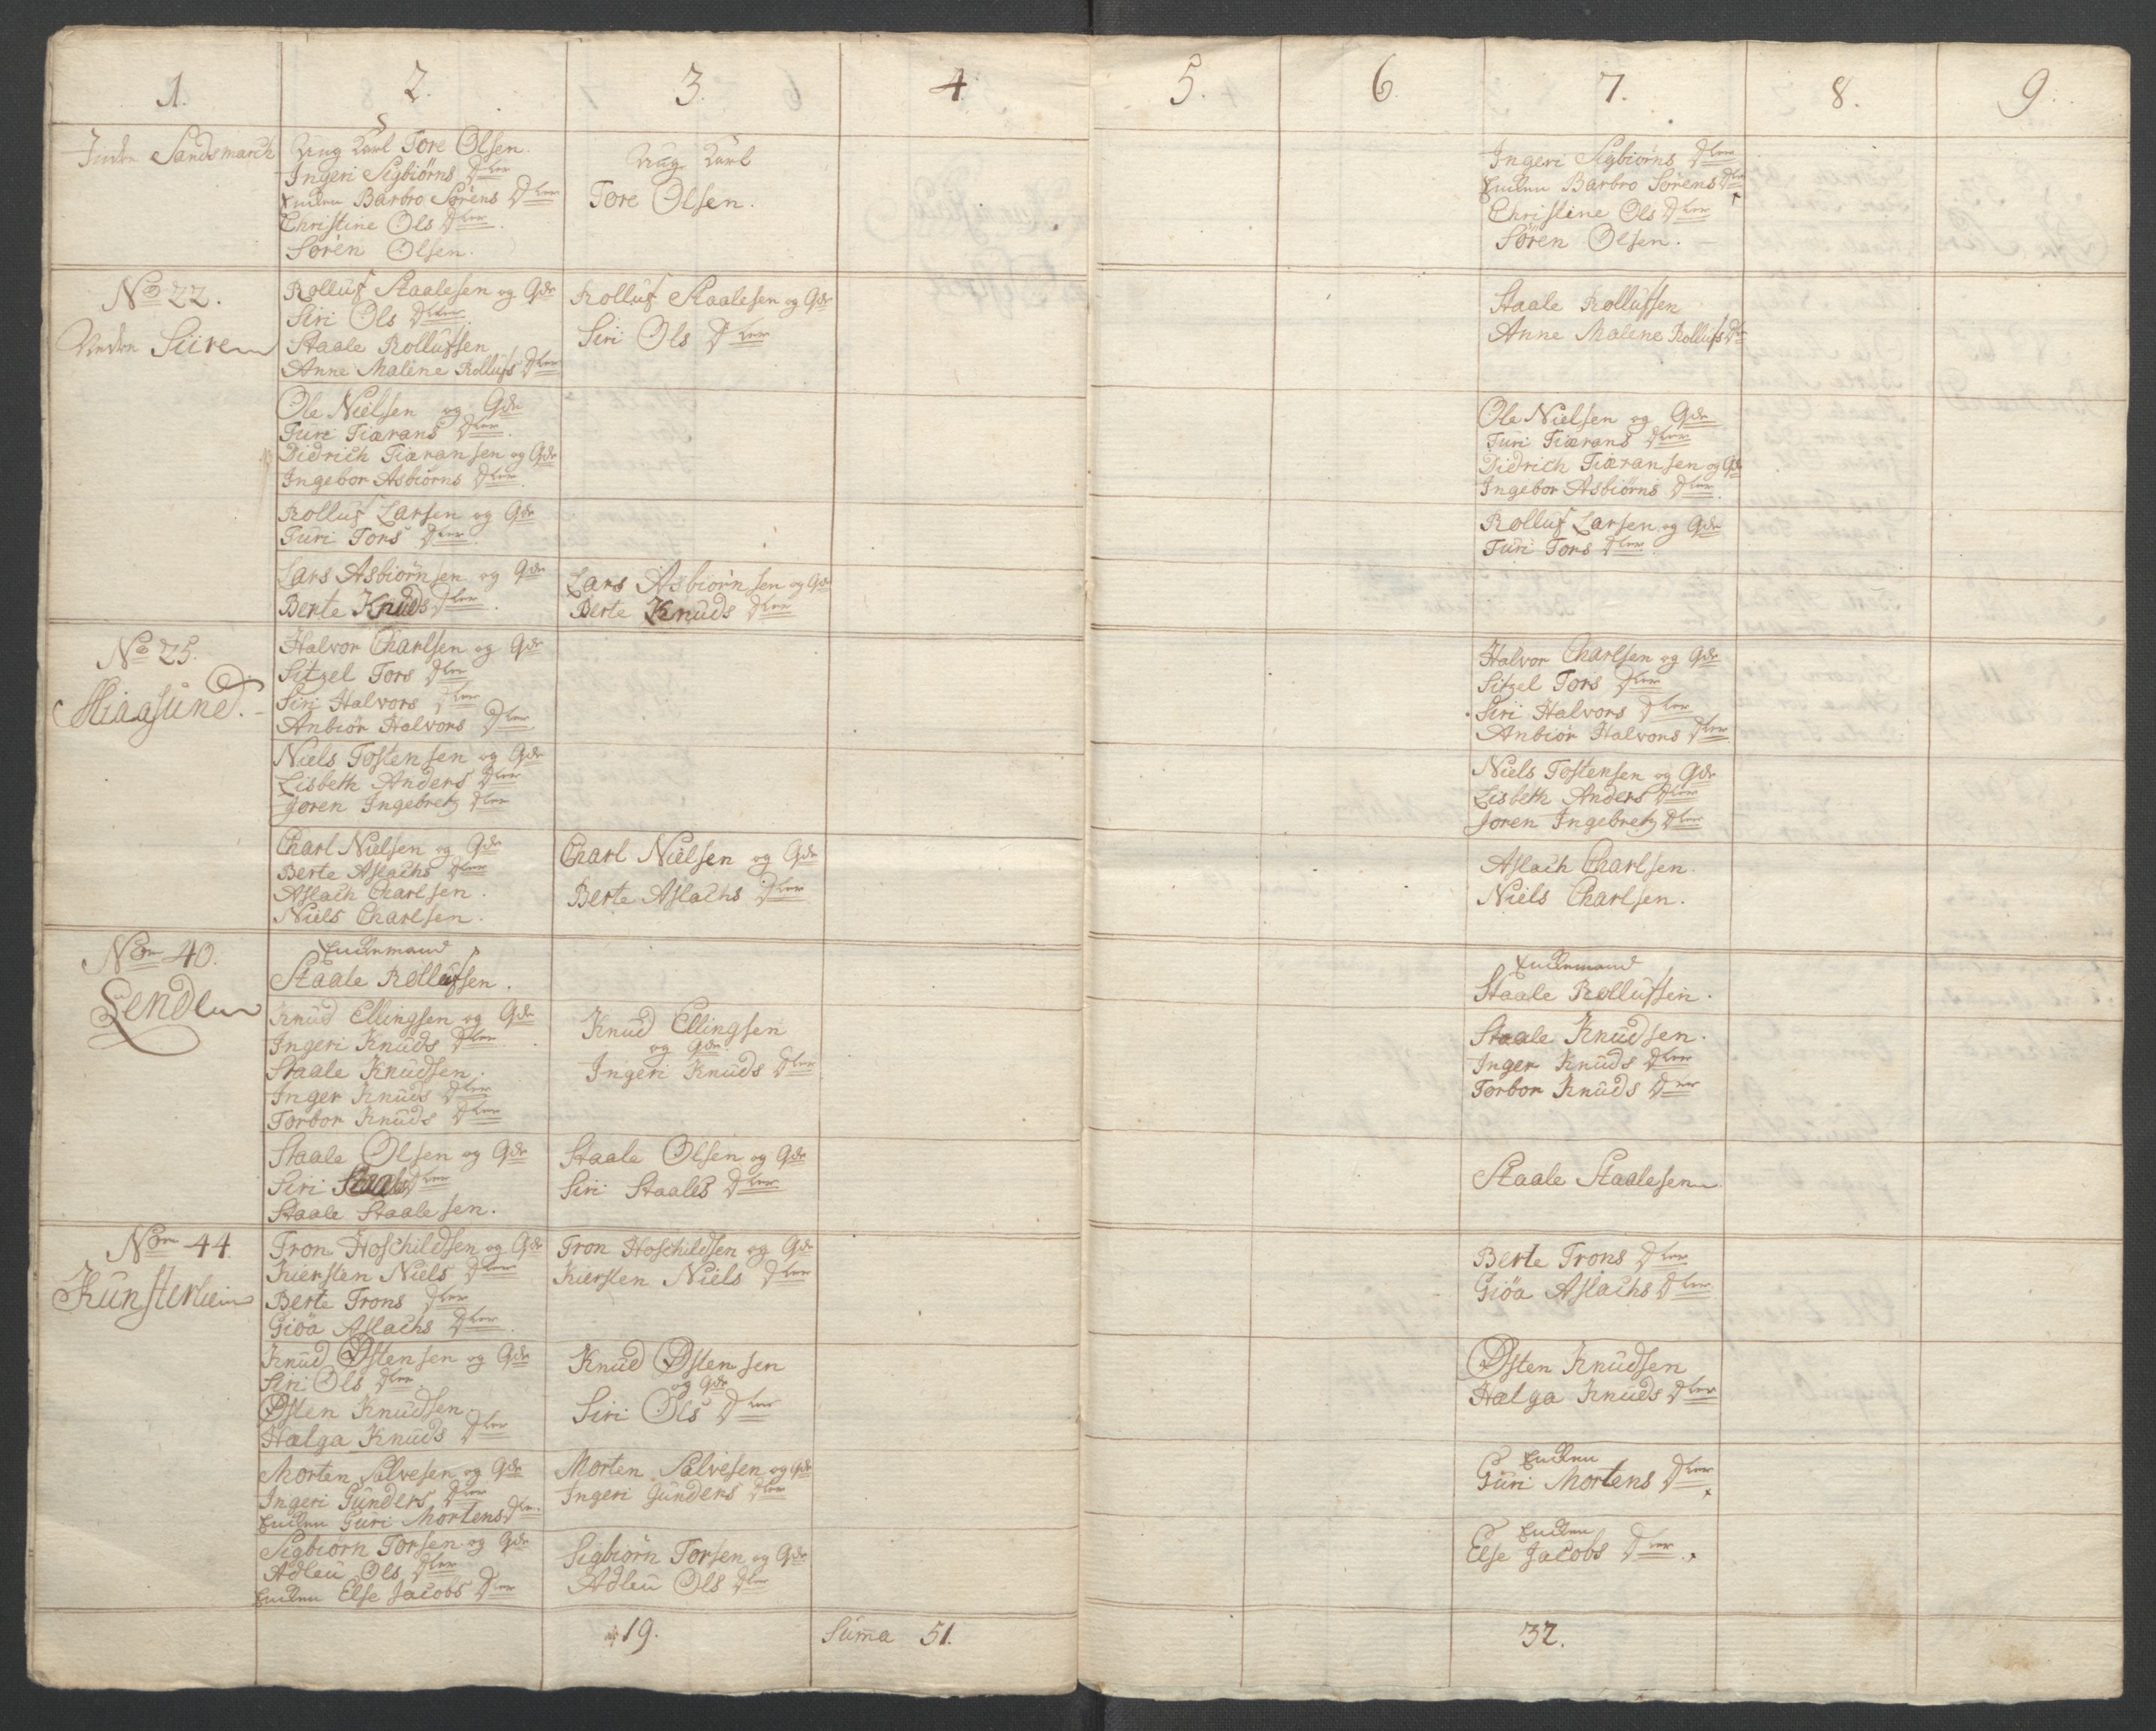 1.
2.
3.
4.
5.
6.
7.
8.
9.
Indre Sandsmarck
Ung Karl Tore Olsen.
Ingeri Sigbiørns Dtter
Encken Barbro Sørens Dtter
Christine Ols Dtter
Søren Olsen.
Ung Karl
Tore Olsen.
Ingeri Sigbiørns Dtter
Encken Barbro Sørens Dtter
Christine Ols Dtter
Søren Olsen.
No 22.
Rolluf Staalesen og Qde
Siri Ols Dtter
Staale Rollufsen
Anne Malene Rollufs Dtter
Rolluf Staalesen og Qde
Siri Ols Dtter
Staale Rollufsen
Anne Malene Rollufs Dtter
Ole Nielsen og Qde
Turi Tiærans Dtter
Didrich Tiæransen og Qde
Ingebor Asbiørns Dtter
Ole Nielsen og Qde
Turi Tiærans Dtter
Didrich Tiæransen og Qde
Ingebor Asbiørns Dtter
Rolluf Larsen og Qde
Turi Tors Dtter
Rolluf Larsen og Qde
Turi Tors Dtter
Lars Asbiørnsen og Qde
Berte Knuds Dtter
Lars Asbiørnsen og Qde
Berte Knuds Dtter
No 25.
Miaasund.
Halvor Charlsen og Qde
Sitzel Tors Dtter
Siri Halvors Dtter
Anbiør Halvors Dtter
Halvor Charlsen og Qde
Sitzel Tors Dtter
Siri Halvors Dtter
Anbiør Halvors Dtter
Niels Tostensen og Qde
Lisbeth Anders Dtter
Joren Ingebretz Dtter
Niels Tostensen og Qde
Lisbeth Anders Dtter
Joren Ingebretz Dtter
Charl Nielsen og Qde
Berte Aslachs Dtter
Aslach Charlsen.
Niels Charlsen.
Charl Nielsen og Qde
Berte Aslachs Dtter
Aslach Charlsen.
Niels Charlsen.
Nom 40.
Lenden
Enckemand
Staale Rollufsen.
Enckemand
Staale Rollufsen.
Knud Ellingsen og Qde
Ingeri Knuds Dtter
Staale Knudsen.
Inger Knuds Dtter
Torbor Knuds Dtter
Knud Ellingsen
og Qde
Ingeri Knuds Dtter
Staale Knudsen.
Inger Knuds Dtter
Torbor Knuds Dtter
Staale Olsen og Qde
Siri Staales Dtter
Staale Staalesen.
Staale Olsen og Qde
Siri Staales Dtter
Staale Staalesen.
Nom 44.
Tron Hoschildsen og Qde
Kiersten Niels Dtter
Berte Trons Dtter
Giöa Aslachs Dtter
Tron Hoschildsen og Qde
Kiersten Niels Dtter
Berte Trons Dtter
Giöa Aslachs Dtter
Knud Østensen og Qde
Siri Ols Dtter
Østen Knudsen.
Halga Knuds Dtter
Knud Østensen
og Qde
Siri Ols Dtter
Østen Knudsen
Halga Knuds Dtter
Morten Salvesen og Qde
Ingeri Gunders Dtter
Encken Guri Mortens Dtter
Morten Salvesen og Qde
Ingeri Gunders Dtter
Encken
Guri Mortens Dtter
Sigbiørn Torsen og Qde
Adleu Ols Dtter
Encken Else Jacobs Dtter
Sigbiørn Torsen og Qde
Adleu Ols Dtter
Encken
Else Jacobs Dtter
19.
Summa 51.
32.